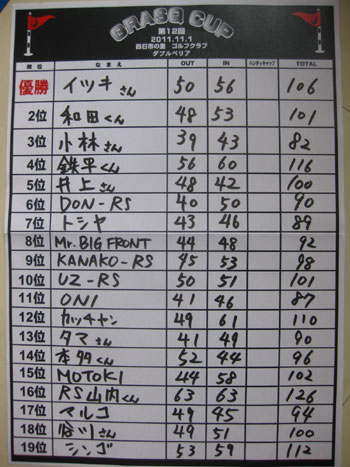 BRASQ CUP
第12回
2011.11.1
四日市の里 ゴルフクラブ
ダブルペリア
順位 なまえ OUT IN ハンディキャップ TOTAL
優勝 イツキさん 50 56 106
2位 和田くん 48 53 101
3位 小林さん 39 43 82
4位 鉄平くん 56 60 116
5位 井上さん 48 42 100
6位 DON-RS 40 50 90
7位 トシヤ 43 46 89
8位 Mr.BIG FRONT 44 48 92
9位 KANAKO-RS 45 53 98
10位 UZ-RS 50 51 101
11位 ONI 41 46 87
12位 カッチャン 49 61 110
13位 タマさん 41 49 90
14位 本多くん 52 44 96
15位 MOTOKI 44 58 102
16位 RS山内くん 63 63 126
17位 マルコ 49 45 94
18位 谷川さん 49 51 100
19位 シンゴ 53 59 112